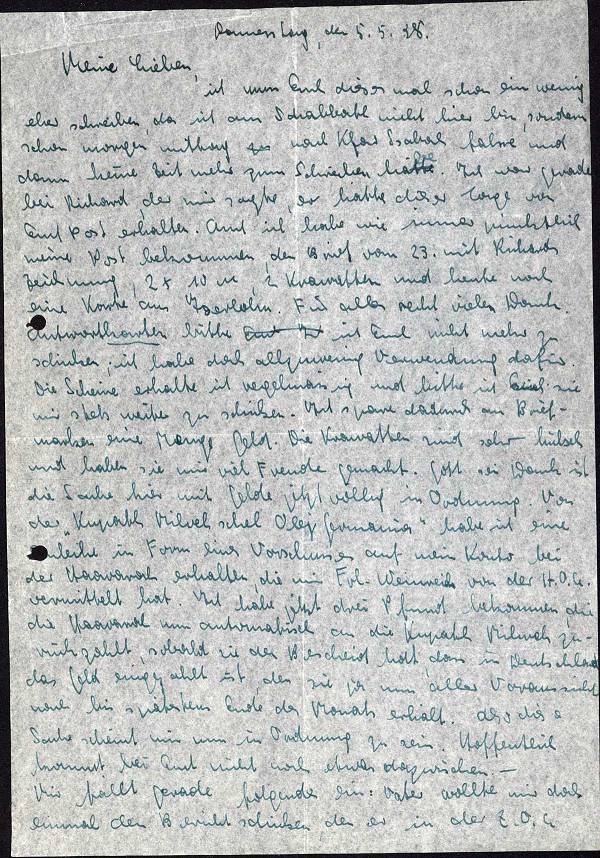 Donnerstag, den 5.5.38.
Meine Lieben,
ich muss Euch dieses mal schon ein wenig
eher schreiben, da ich am Schabbath nicht hier bin, sondern
schon morgen mittag nach Kfar Ssabah fahre und
dann keine Zeit mehr zum Schreiben hätte. Ich war gerade
bei Richard, der mir sagte er hätte dieser Tage von
Euch Post erhalten. Auch ich habe wie immer pünktlich
meine Post bekommen, den Brief vom 23. mit Richards
Zeichnung, 2 x 10 M, 2 Krawatten und heute noch
eine Karte aus Iserlohn. Für alles recht vielen Dank.
Antwortkarten bitte ich Euch nicht mehr zu
schicken, ich habe doch allzuwenig Verwendung dafür.
Die Scheine erhalte ich regelmässig und bitte ich Euch sie
mir stets weiter zu schicken. Ich spare dadurch an Brief-
marken eine Menge Geld. Die Krawatten sind sehr hübsch
und haben sie mir viel Freude gemacht. Gott sei Dank ist
die Sache hier mit Gelde jetzt völlig in Ordnung. Von
der "Kupath Milveh schel Oley Germania" habe ich eine
Anleihe in Form eines Vorschusses auf mein Konto bei
der Haavarah erhalten die mir Frl. Weinreich von der H.O.G.
vermittelt hat. Ich habe jetzt drei Pfund bekommen, die
die Haavarah nun automatisch an die Kupath Milveh zu-
rückzahlt, sobald sie den Bescheid hat, dass in Deutschland
das Geld eingezahlt ist, den sie ja nun aller Voraussicht
nach bis spätestens Ende des Monats erhält. Also diese
Sache scheint mir nun in Ordnung zu sein. Hoffentlich
kommt bei Euch nicht noch etwas dazwischen.—
Mir fällt gerade folgendes ein: Vater wollte mir doch
einmal den Bericht schicken, den er in der Z.O.G.